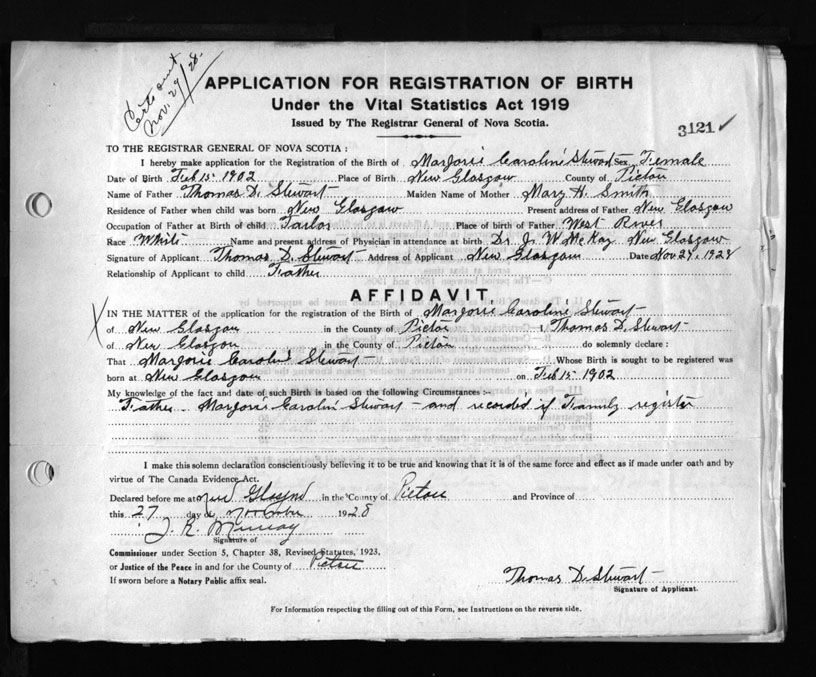 Certs out
Nov. 29/28.
APPLICATION FOR REGISTRATION OF BIRTH
Under the Vital Statistics Act 1919
Issued by The Registrar General of Nova Scotia.
3121 ✓
TO THE REGISTRAR GENERAL OF NOVA SCOTIA :
I hereby make application for the Registration of the Birth of Marjorie Caroline Stewart Sex Female
Date of Birth Feb 15 1902 Place of Birth New Glasgow County of Pictou
Name of Father Thomas D. Stewart Maiden Name of Mother Mary H. Smith
Residence of Father when child was born New Glasgow Present address of Father New Glasgow
Occupation of Father at Birth of child Tailor Place of birth of Father West River
Race White Name and present address of Physician in attendance at birth Dr. J. W. McKay New Glasgow
Signature of Applicant Thomas D. Stewart Address of Applicant New Glasgow Date Nov 27, 1928
Relationship of Applicant to child Father
AFFIDAVIT
X IN THE MATTER of the application for the registration of the Birth of Marjorie Caroline Stewart
of New Glasgow in the County of Pictou I, Thomas D. Stewart
of New Glasgow in the County of Pictou do solemnly declare :
That Marjorie Caroline Stewart Whose Birth is sought to be registered was
born at New Glasgow on Feb 15 1902
My knowledge of the fact and date of such Birth is based on the following Circumstances :-
Father Marjorie Caroline Stewart - and recorded if Family register
I make this solemn declaration conscientiously believing it to be true and knowing that it is of the same force and effect as if made under oath and by
virtue of The Canada Evidence Act.
Declared before me at New Glasgow in the County of Pictou and Province of
this 27 day of November 1928
J. R. Murray
Signature of
Commissioner under Section 5, Chapter 38, Revised Statutes, 1923,
or Justice of the Peace in and for the County of Pictou
If sworn before a Notary Public affix seal.
Thomas D. Stewart
Signature of Applicant.
For Information respecting the filling out of this Form, see Instructions on the reverse side.